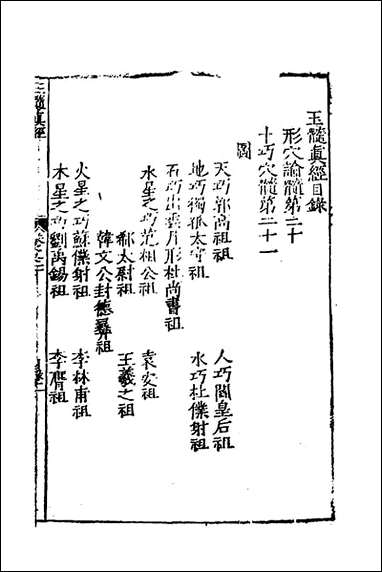 玉髓真經目錄
形穴論髓第二十
十巧穴髓第二十一
圖
天巧郭高祖祖 人巧閻皇后祖
地巧獨孤太守祖 水巧杜僕射祖
石巧出雲月形杜尚書祖
水星之巧范祖公祖 袁安祖
郗太尉祖 王羲之祖
韓文公封德彝祖
火星之巧蘇僕射祖 李林甫祖
木星之巧劉禹錫祖 李膺祖
玉髓真經